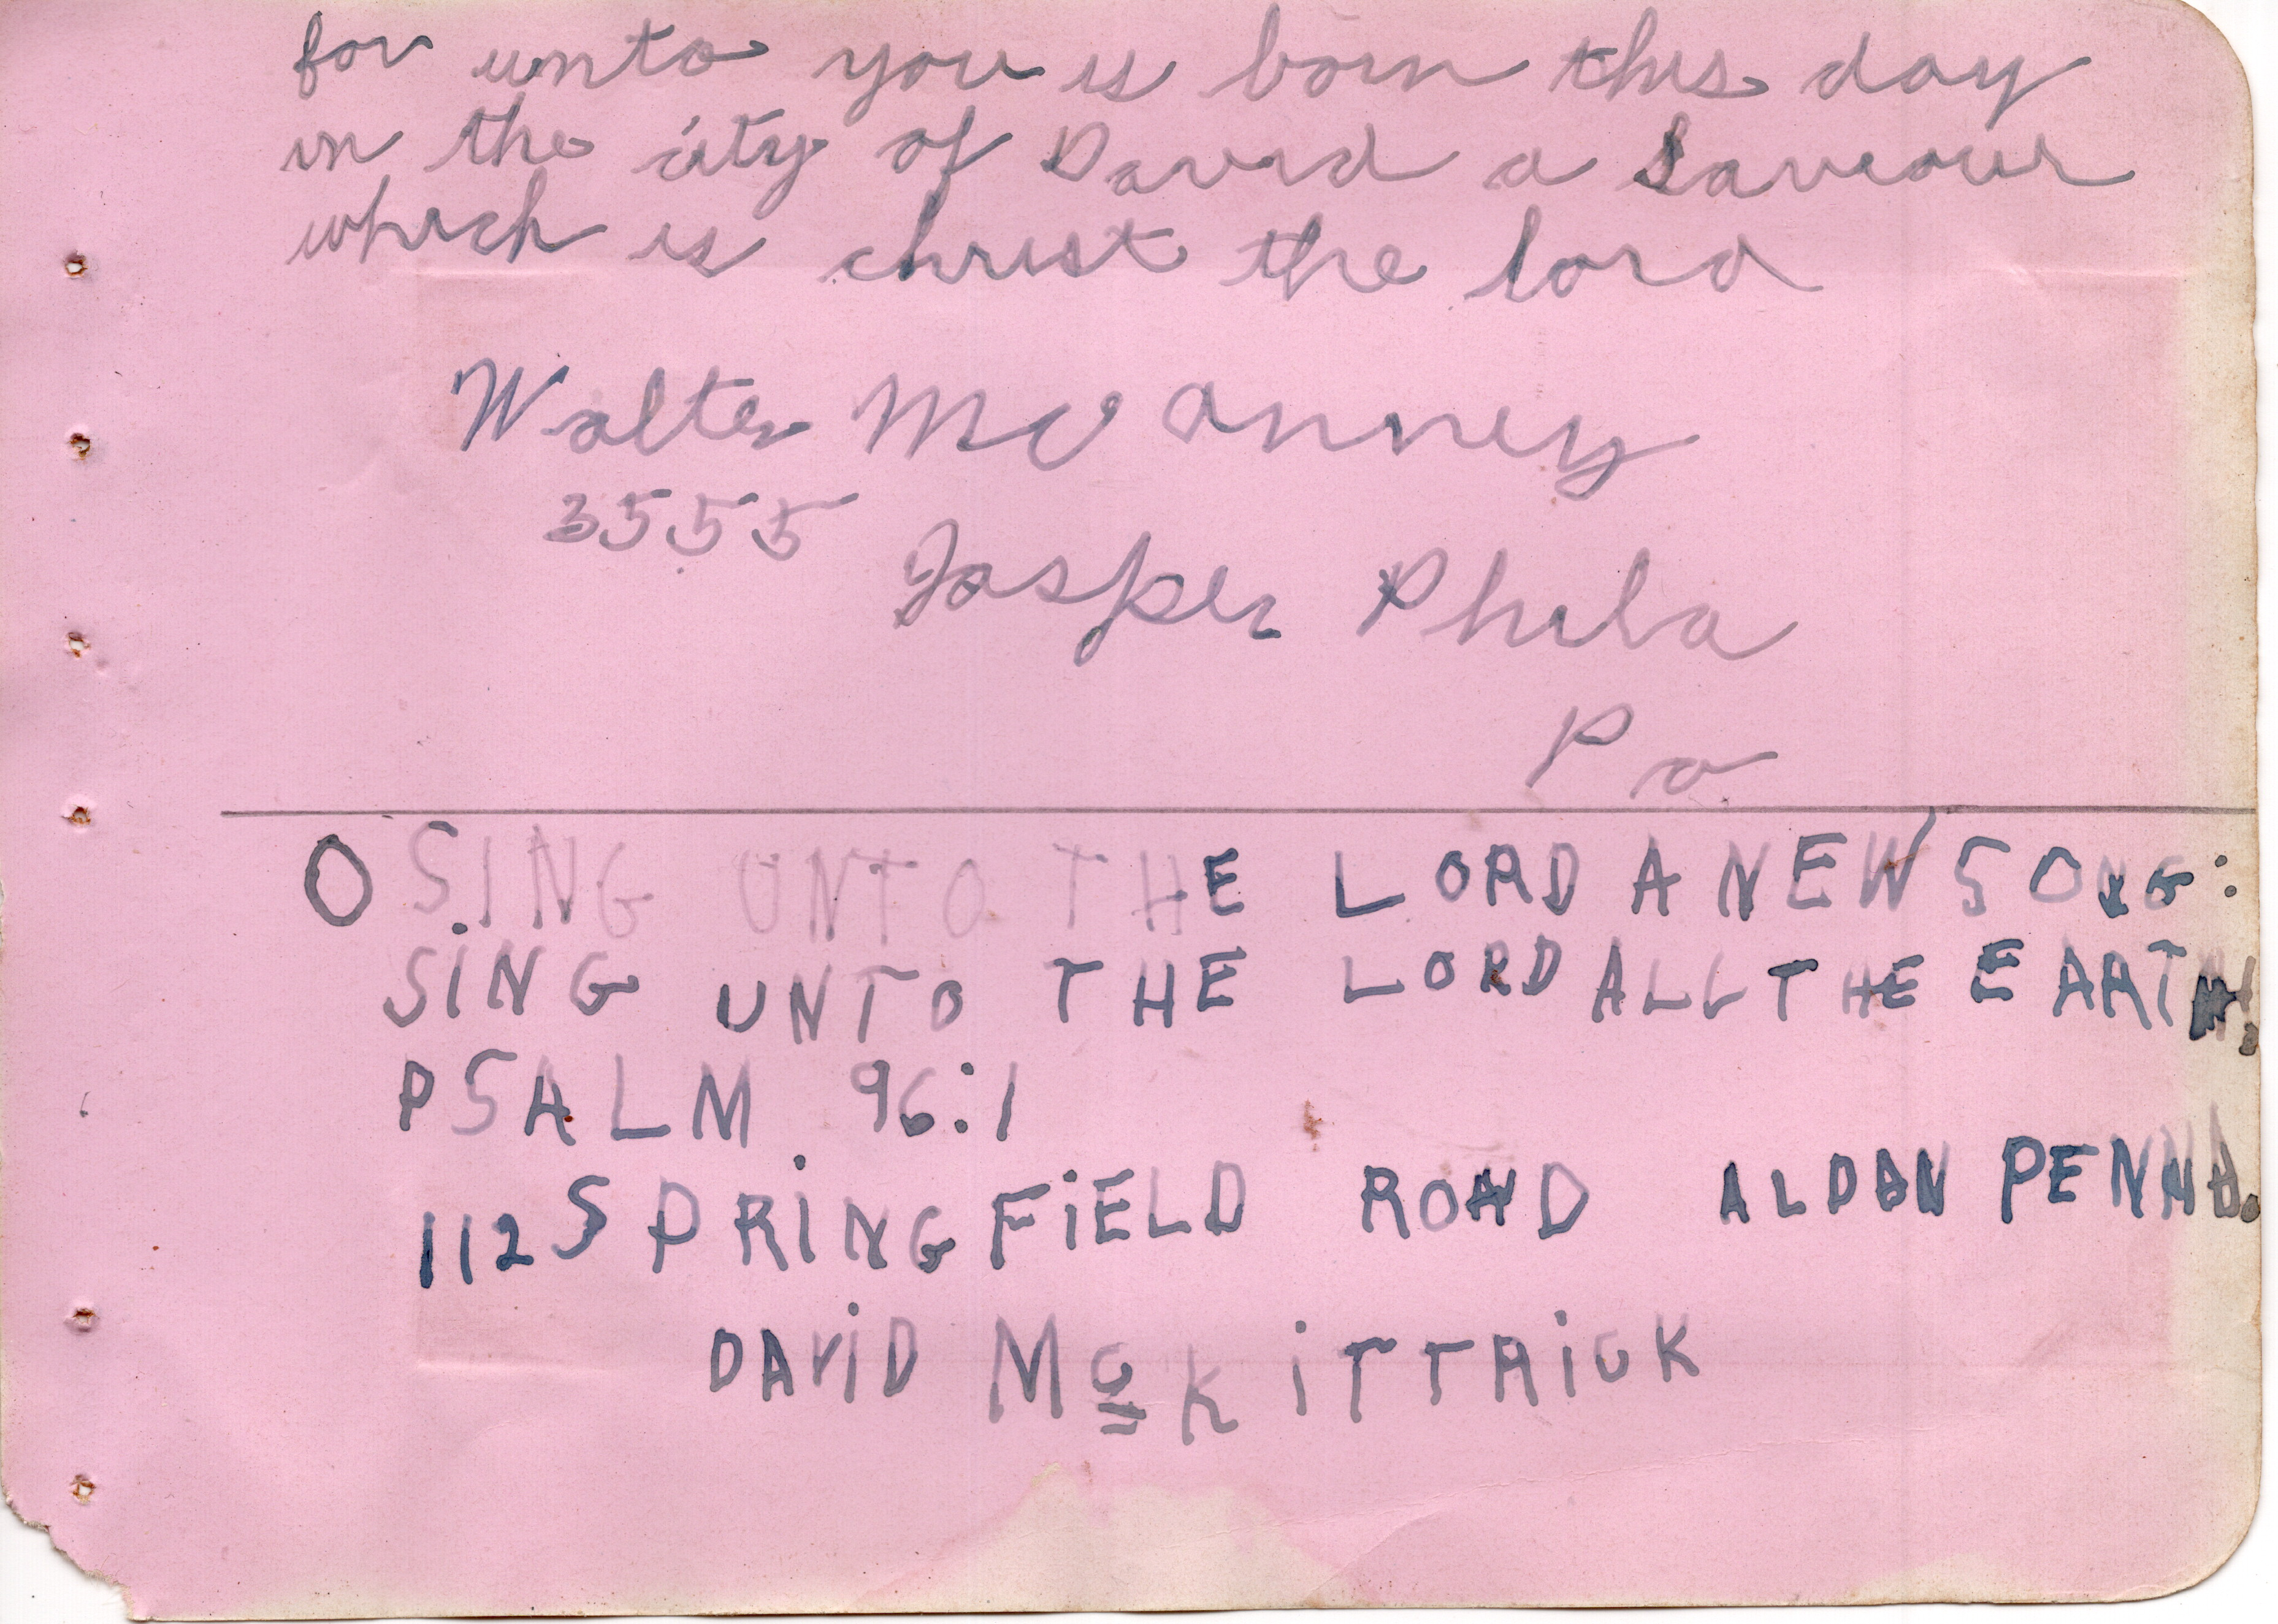 for unto you is born this day
in the city of David a Saviour
which is christ the lord
Walter Mc Anney
3555
Jasper Phila
Pa
O SING UNTO THE LORD A NEW SONG:
SiNG UNTO THE LORD ALL THE EARTH.
PSALM 96:1
112 SPRiNGFiELD ROAD ALDAN PENNA.
DAViD McKiTTRiCK